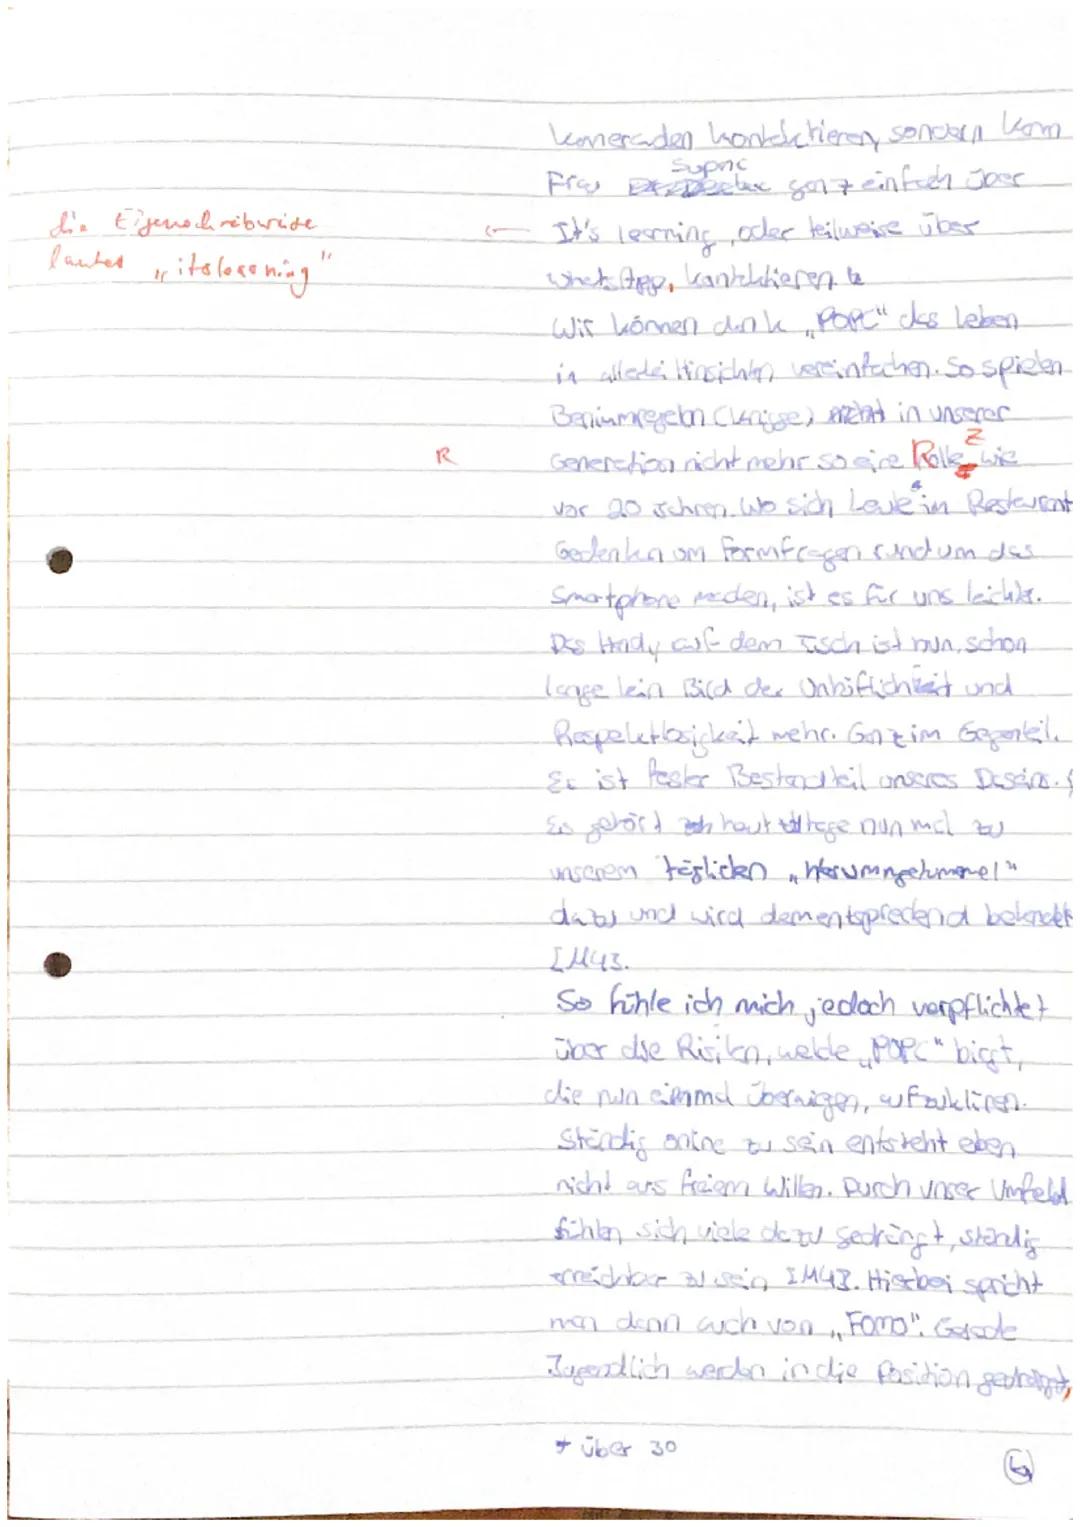 kameraden kontaktieren, sondern kann
Supnc
Frau ganz einfach über
die Eigenschreibweise
lautet „itslearning"
← It's learning, oder teilweise über
WhatsApp, kontaktieren.
Wir können dank „POPC" das Leben
in allerlei Hinsichten vereinfachen. So spielen
Benimmregeln (Knigge) in unserer
R
Z
Generation nicht mehr so eine Rolle, wie
vor 20 Jahren. Wo sich Leute* im Restaurant
Gedanken um Formfragen rund um das
Smartphone machen, ist es für uns leichter.
Das Handy auf dem Tisch ist nun schon
lange kein Bild der Unhöflichkeit und
Respektlosigkeit mehr. Ganz im Gegenteil.
Es ist fester Bestandteil unseres Daseins.
Es gehört heut tage nun mal zu
unserem täglichen
dazu und wird dementsprechend behandelt
[M4].
So fühle ich mich jedoch verpflichtet
über die Risiken, welche „POPC" birgt,
die nun einmal überwiegen, aufzuklären.
Ständig online zu sein entsteht eben
nicht aus freiem Willen. Durch unser Umfeld
fühlen sich viele dazu gedrängt, ständig
erreichbar zu sein [M4]. Hierbei spricht
man dann auch von „Fomo". Gerade
Jugendlich werden in die Position gedrängt,
* über 30